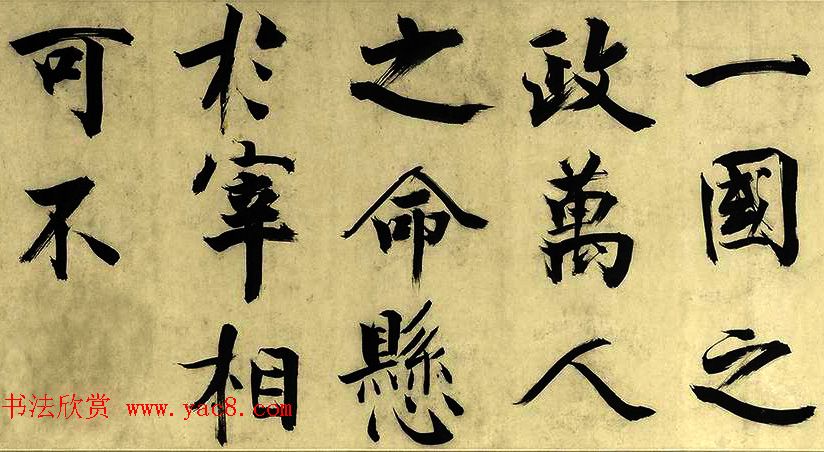 一國之
政萬人
之命懸
於宰相
可不
书法欣赏 www.yac8.com